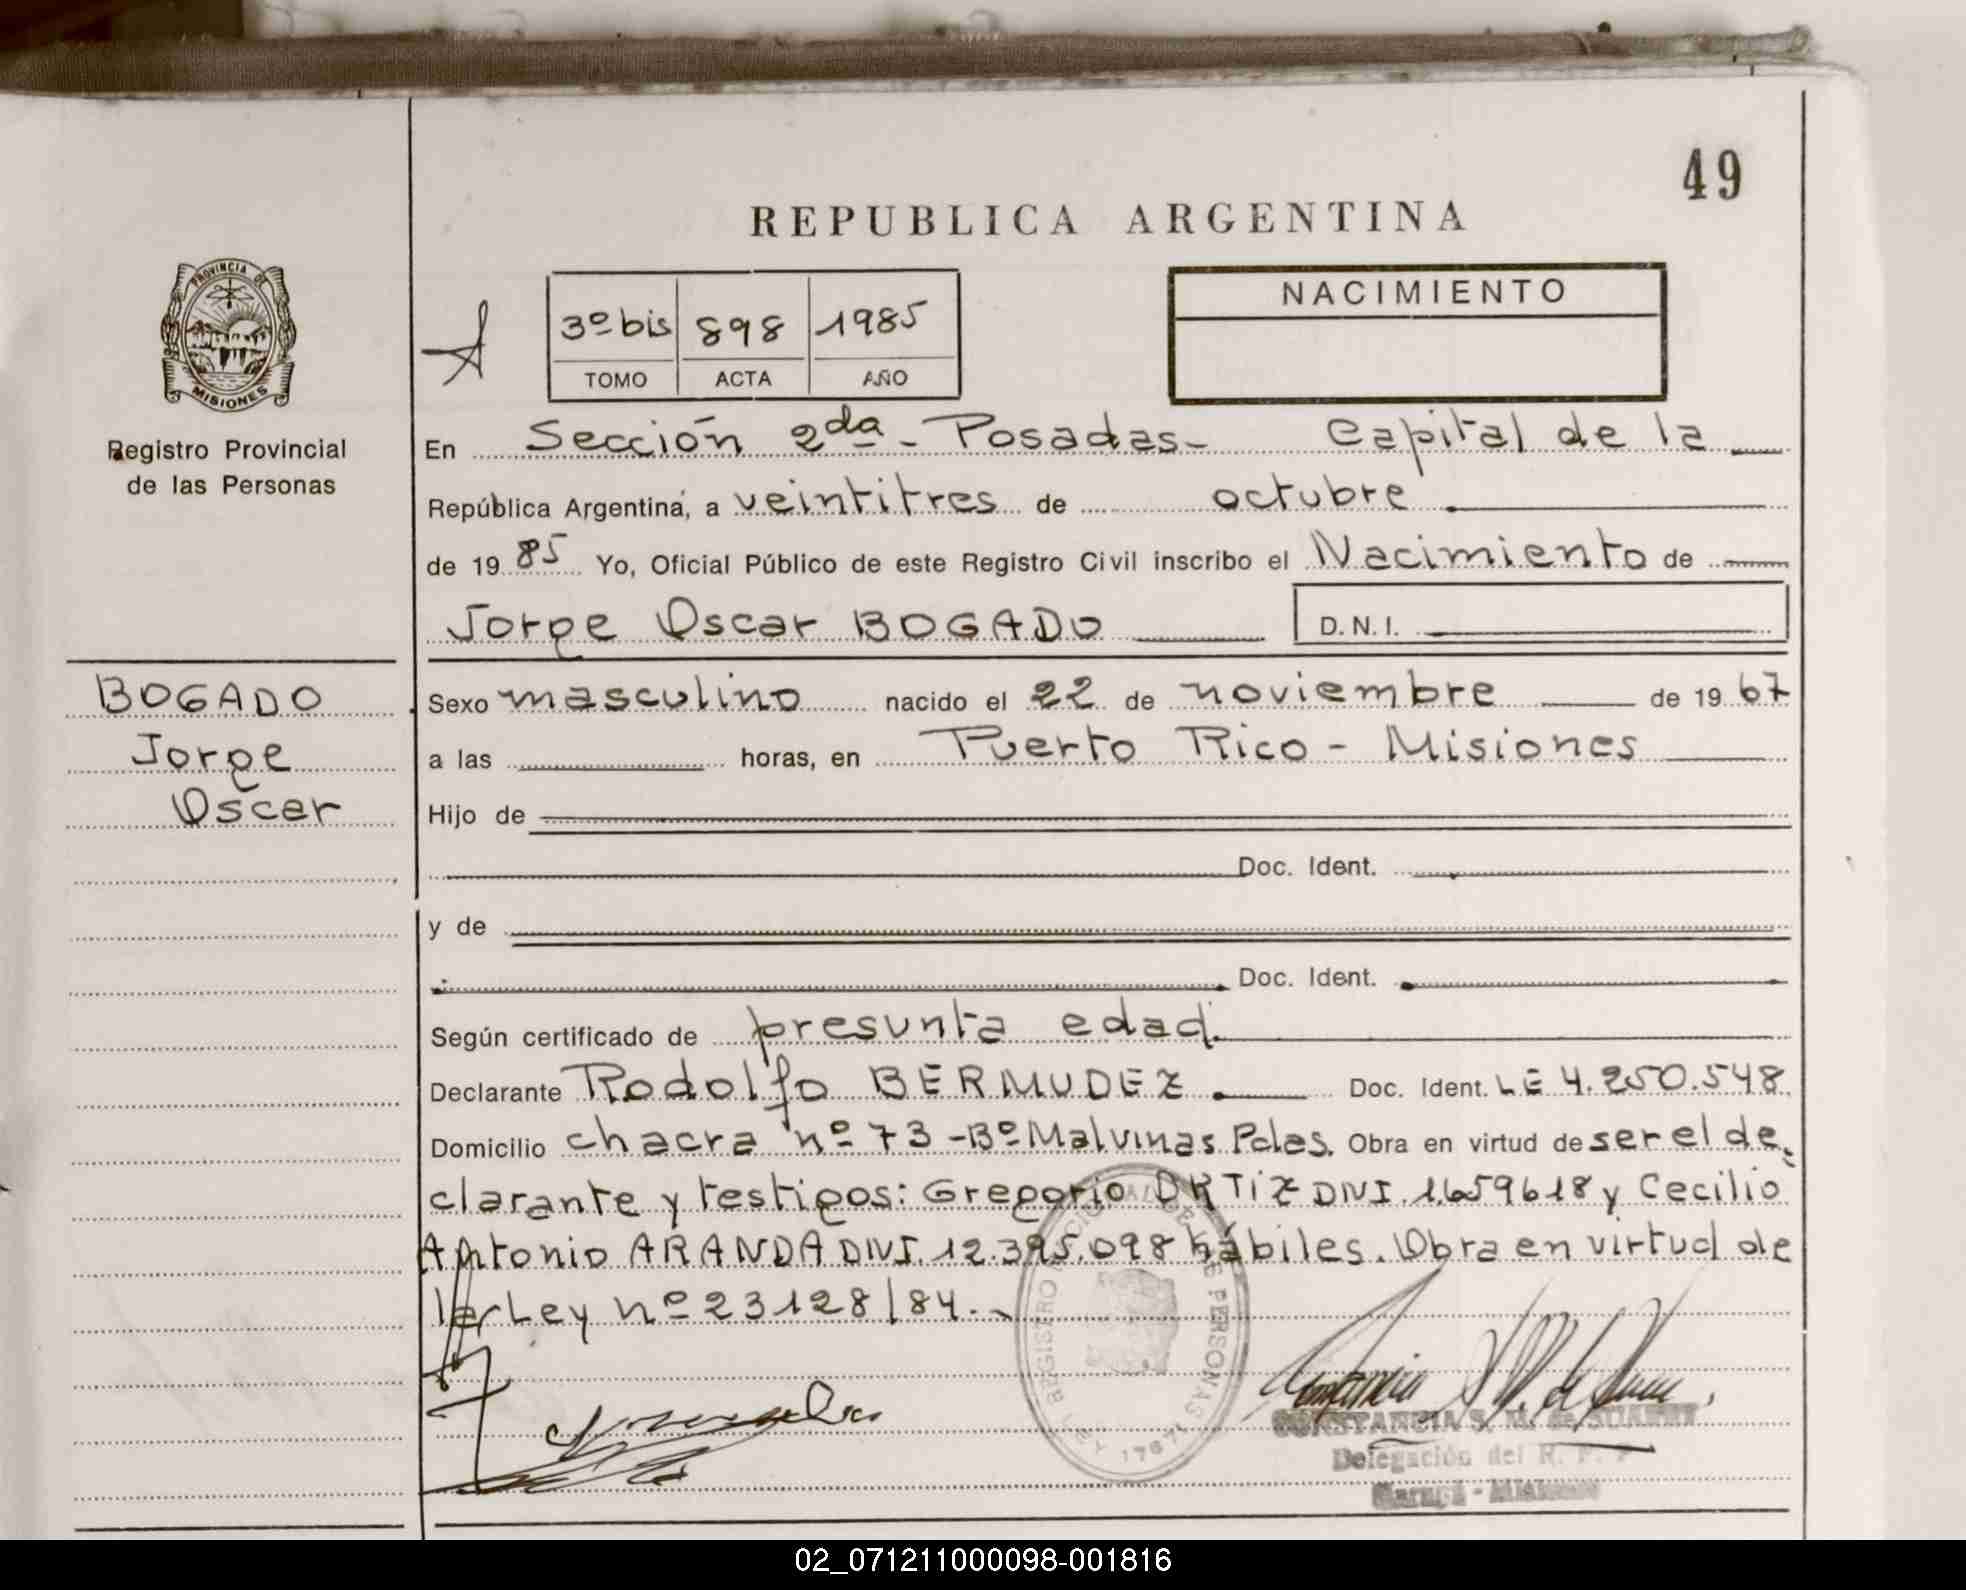 49
REPUBLICA ARGENTINA
PROVINCIA DE
MISIONES
Registro Provincial
de las Personas
3º bis 898 1985
TOMO ACTA AÑO
NACIMIENTO
En Sección 2da - Posadas - Capital de la
República Argentina, a veintitres de octubre
de 1985 Yo, Oficial Público de este Registro Civil inscribo el Nacimiento de
Jorge Oscar BOGADO D.N.I.
BOGADO
Jorge
Oscar
Sexo masculino nacido el 22 de noviembre de 1967
a las horas, en Puerto Rico - Misiones
Hijo de
Doc. Ident.
y de
Doc. Ident.
Según certificado de presunta edad.
Declarante Rodolfo BERMUDEZ. Doc. Ident. LE 4.250.548
Domicilio chacra nº 73 - Bº Malvinas Pdas. Obra en virtud de ser el de
clarante y testigos: Gregorio ORTIZ DNI. 1.659618 y Cecilio
Antonio ARANDA DNI. 12.395.098 hábiles. Obra en virtud de
la Ley nº 23128/84.-
REGISTRO NACIONAL DE LAS PERSONAS
LEY 17671
CONSTANCIA S. M. de SUAREZ
Delegación del R. P. P
02_071211000098-001816